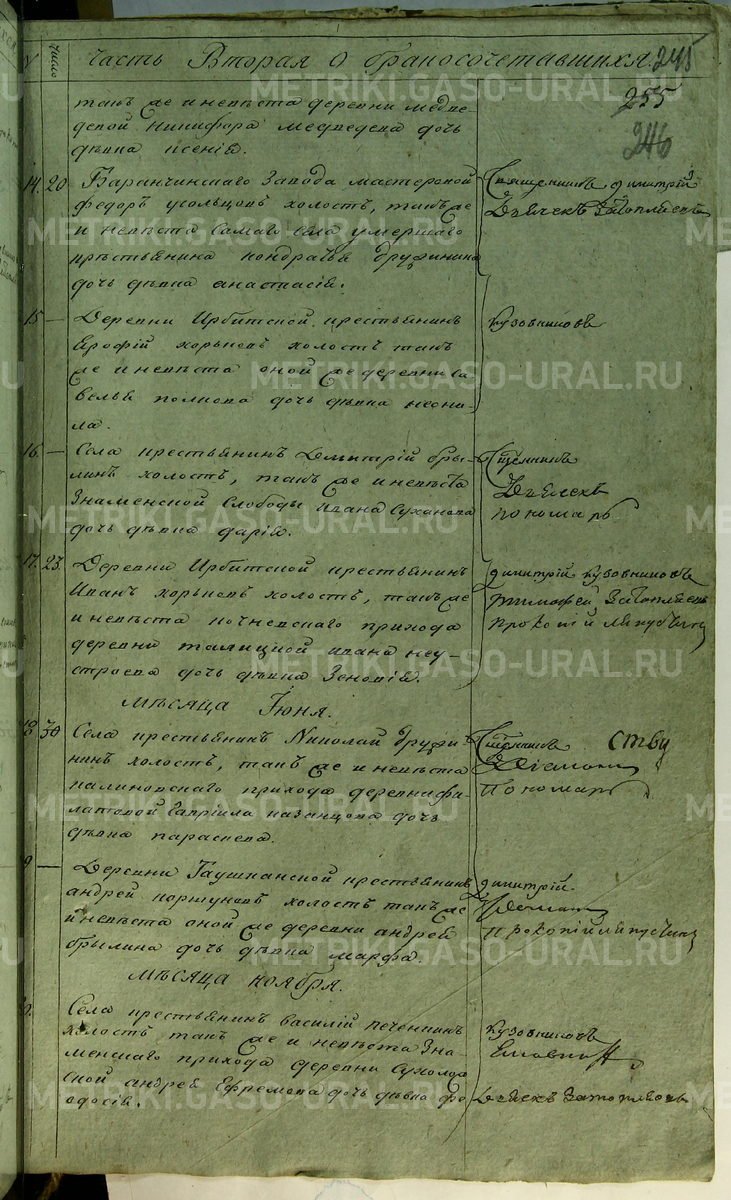 число
Часть Вторая о бракосочетавшихся. 245
255
246
такъ же и невѣста деревни медве-
девой никифора медведева дочь
дѣвка ксенія.
14. 20 Баранчинскаго Завода мастеровой
федоръ усольцовъ холостъ, такъ же
и невѣста самаго села умершаго
крѣстьянина кондратья друфинина
дочь дѣвка анастасія.
Священникъ димитрій
Дьячекъ
15 — Деревни Ирбитской крестьянинъ
Ерофій хорьковъ холостъ такъ
же и невѣста оной же деревни са-
велья дочь дѣвка неони-
ла.
кузовниковъ
16. — Села крестьянинъ Дмитрій бры-
линъ холостъ, такъ же и невѣста
Знаменской Слободы ивана Суханова
дочь дѣвка дарія.
Дьячекъ
пономарь
17. 23. Деревни Ирбитской крестьянинъ
Иванъ хорьковъ холостъ, такъ же
и невѣста кочневскаго прихода
деревни талицкой ивана неу-
строева дочь дѣвка Зеновія.
димитрій кузовниковъ
тимофей
прокопій
мѣсяца Іюня.
18 30 Села крестьянинъ Николай друфи-
нинъ холостъ, такъ же и невѣста
калиновскаго прихода деревни фи-
латовой Гавріила казанцова дочь
дѣвка парасковья.
Пономарь
9 — Деревни Гаушканской крестьянинъ
андрей коршуновъ холостъ такъ же
и невѣста оной же деревни андрея
брылина дочь дѣвка марфа.
димитрій
прокопій
мѣсяца ноября.
Села крестьянинъ василій печенкинъ
холостъ такъ же и невѣста Зна-
менскаго прихода деревни Сухолож-
ской андрея Ефремова дочь дѣвка фе-
одосія.
кузовниковъ
Дьячекъ
METRIKI.GASO-URAL.RU